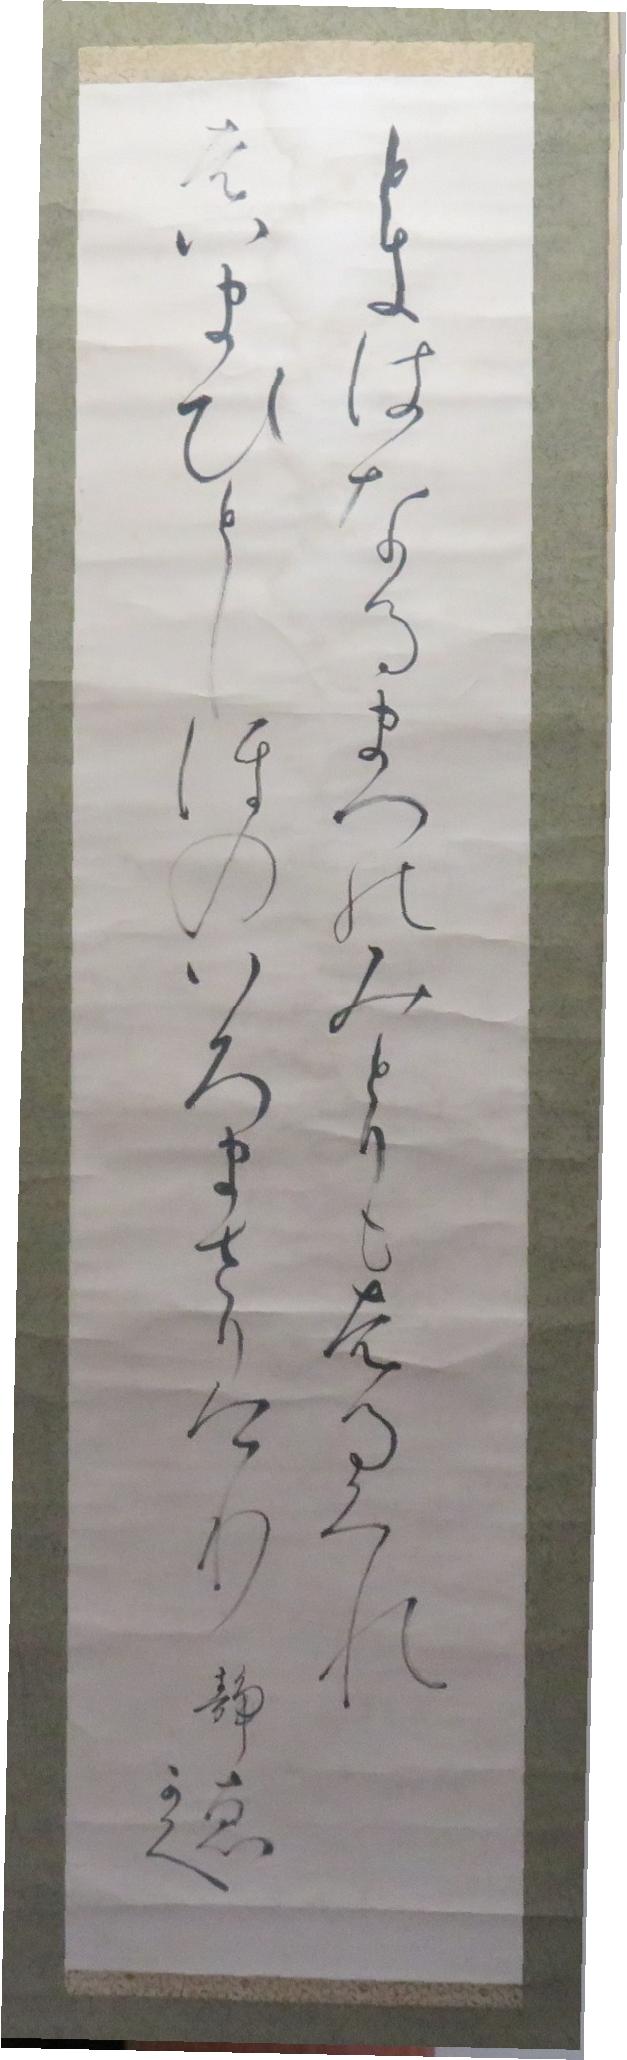 ときはなるまつのみとりもはるくれ
はいまひとしほのいろまさりけり
静恵
かく